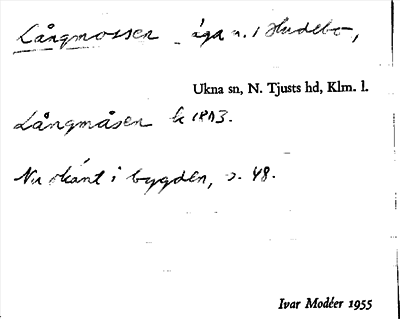 Långmossen, åga n. i Hudebo,
Ukna sn, N. Tjusts hd, Klm. l.
Långmåsen k 1873.
Nu okänt i bygden, s. 48.
Ivar Modéer 1955